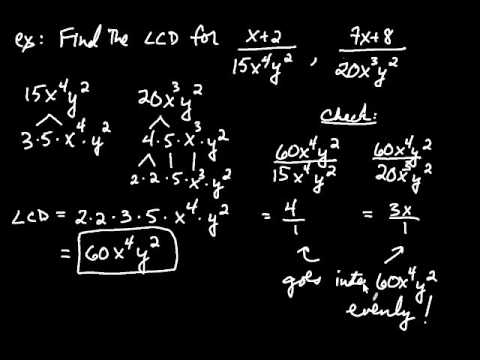 ex: Find the LCD for x+2/15x⁴y² , 7x+8/20x³y²
15x⁴y² 20x³y²
3·5·x⁴·y² 4·5·x³·y²
2·2·5·x³·y²
LCD = 2·2·3·5·x⁴·y²
= 60x⁴y²
check:
60x⁴y²/15x⁴y² 60x⁴y²/20x³y²
= 4/1 = 3x/1
goes into 60x⁴y²
evenly!